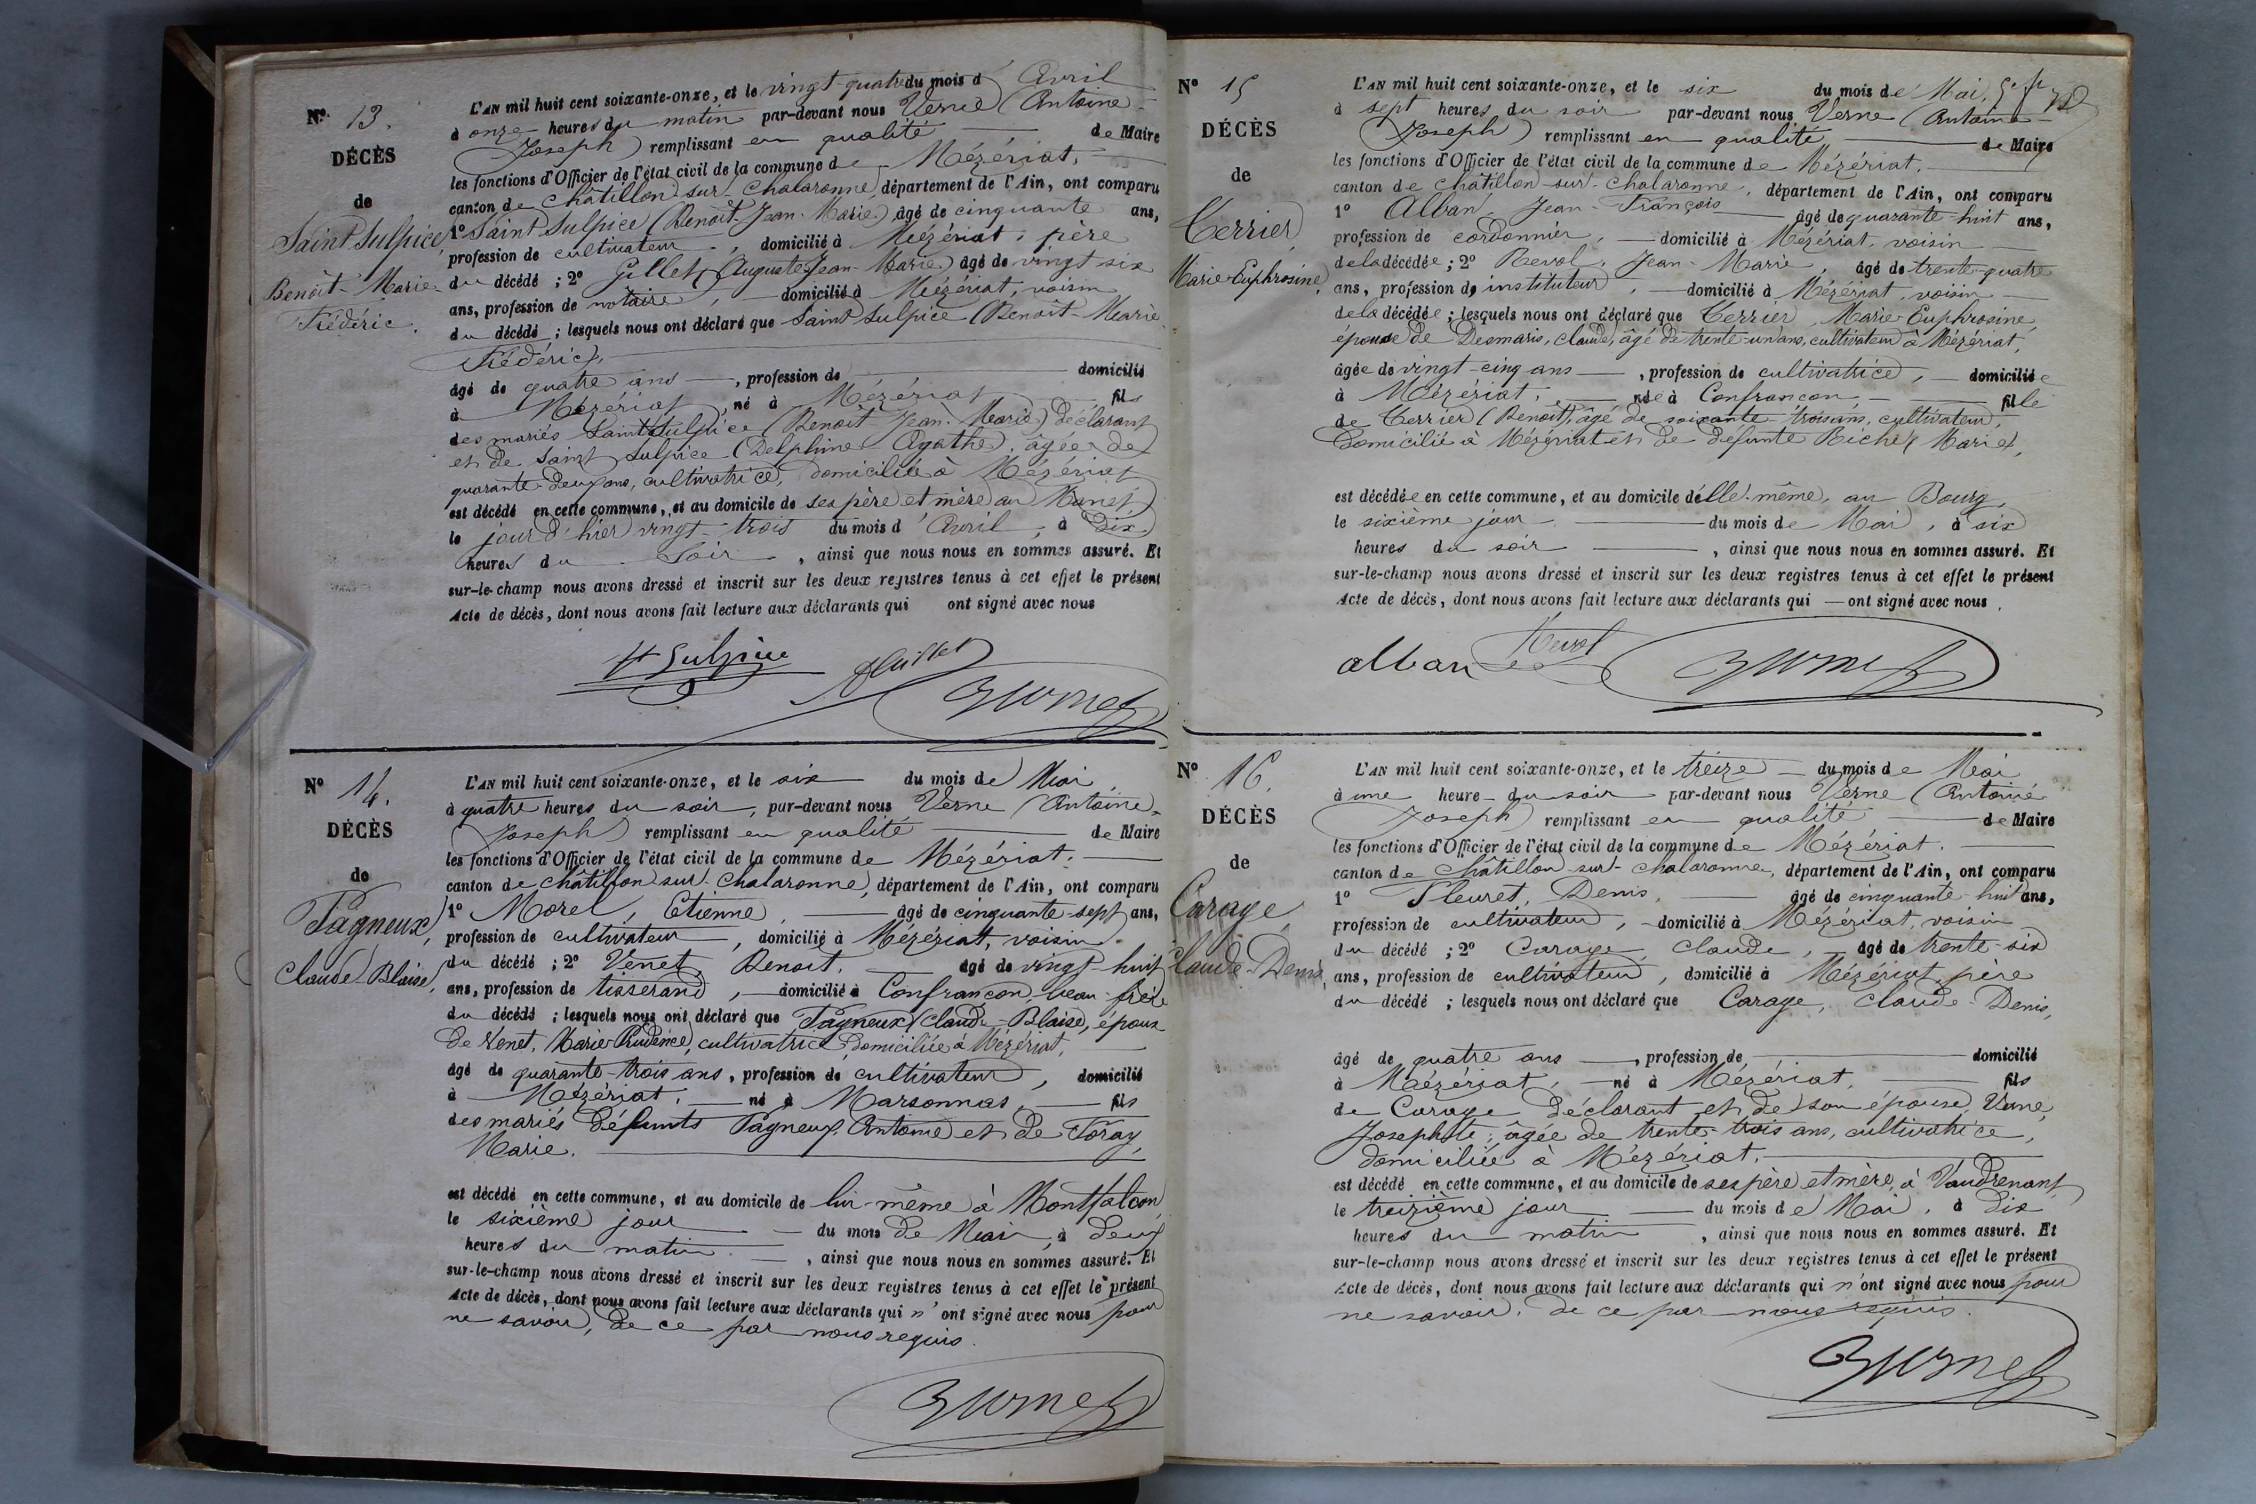 Nº 13.
DÉCÈS
de
Saint Sulpice,
Benoît-Marie-
Frédéric.
L'AN mil huit cent soixante-onze, et le vingt quatre du mois d'Avril
à onze heures du matin par-devant nous Verne (Antoine-
Joseph) remplissant en qualité de Maire
les fonctions d'Officier de l'état civil de la commune de Mézériat,
canton de Châtillon sur Chalaronne, département de l'Ain, ont comparu
1º Saint Sulpice (Benoît-Jean-Marie) âgé de cinquante ans,
profession de cultivateur, domicilié à Mézériat, père
du décédé ; 2º Gillet (Auguste Jean-Marie) âgé de vingt six
ans, profession de notaire, domicilié à Mézériat, voisin
du décédé ; lesquels nous ont déclaré que Saint Sulpice (Benoît-Marie
Frédéric),
âgé de quatre ans, profession de domicilié
à Mézériat, né à Mézériat fils
des mariés Saint Sulpice (Benoît-Jean-Marie) déclarant
et de Saint Sulpice (Delphine-Agathe), âgée de
quarante-deux ans, cultivatrice, domiciliée à Mézériat
est décédé en cette commune, et au domicile de ses père et mère au
le jour d'hier vingt-trois du mois d'Avril, à Dix
heures du Soir, ainsi que nous nous en sommes assuré. Et
sur-le-champ nous avons dressé et inscrit sur les deux registres tenus à cet effet le présent
Acte de décès, dont nous avons fait lecture aux déclarants qui ont signé avec nous
St Sulpice
Nº 14.
DÉCÈS
de
Pagneux,
Claude-Blaise,
L'AN mil huit cent soixante-onze, et le six du mois de Mai,
à quatre heures du soir, par-devant nous Verne (Antoine-
Joseph) remplissant en qualité de Maire
les fonctions d'Officier de l'état civil de la commune de Mézériat,
canton de Châtillon sur Chalaronne, département de l'Ain, ont comparu
1º Morel, Etienne, âgé de cinquante-sept ans,
profession de cultivateur, domicilié à Mézériat, voisin
du décédé ; 2º Venet, Benoit, âgé de vingt-huit
ans, profession de tisserand, domicilié à Confrançon, beau-frère
du décédé ; lesquels nous ont déclaré que Pagneux (Claude-Blaise), époux
de Venet, Marie Prudence, cultivatrice domiciliée à Mézériat,
âgé de quarante-trois ans, profession de cultivateur, domicilié
à Mézériat, né à Marsonnas, fils
des mariés défunts Pagneux Antoine et de Foray,
Marie.
est décédé en cette commune, et au domicile de lui-même à Montfalcon
le sixième jour du mois de Mai, à deux
heures du matin, ainsi que nous nous en sommes assuré. Et
sur-le-champ nous avons dressé et inscrit sur les deux registres tenus à cet effet le présent
Acte de décès, dont nous avons fait lecture aux déclarants qui n'ont signé avec nous pour
ne savoir, de ce par nous requis.
Nº 15
DÉCÈS
de
Terrier,
Marie-Euphrosine,
L'AN mil huit cent soixante-onze, et le six du mois de Mai,
à sept heures du soir par-devant nous Verne (Antoine-
Joseph) remplissant en qualité de Maire
les fonctions d'Officier de l'état civil de la commune de Mézériat,
canton de Châtillon-sur-Chalaronne, département de l'Ain, ont comparu
1º Alban, Jean-François âgé de quarante-huit ans,
profession de cordonnier, domicilié à Mézériat, voisin
de la décédée ; 2º Revol, Jean-Marie, âgé de trente-quatre
ans, profession de instituteur, domicilié à Mézériat, voisin
de la décédée ; lesquels nous ont déclaré que Terrier, Marie-Euphrosine,
épouse de Desmaris, Claude, âgé de trente-un ans, cultivateur à Mézériat,
âgée de vingt-cinq ans, profession de cultivatrice, domiciliée
à Mézériat, née à Confrançon, fille
de Terrier (Benoît), âgé de soixante-trois ans, cultivateur,
domicilié à Mézériat et de défunte Marie,
est décédée en cette commune, et au domicile d'elle-même, au Bourg,
le sixième jour du mois de Mai, à six
heures du soir, ainsi que nous nous en sommes assuré. Et
sur-le-champ nous avons dressé et inscrit sur les deux registres tenus à cet effet le présent
Acte de décès, dont nous avons fait lecture aux déclarants qui ont signé avec nous,
alban Revol
Nº 16.
DÉCÈS
de
Carage,
Claude-Denis,
L'AN mil huit cent soixante-onze, et le treize du mois de Mai
à une heure du soir par-devant nous Verne (Antoine
Joseph) remplissant en qualité de Maire
les fonctions d'Officier de l'état civil de la commune de Mézériat.
canton de Châtillon sur Chalaronne, département de l'Ain, ont comparu
1º Fleuret, Denis, âgé de cinquante-huit ans,
profession de cultivateur, domicilié à Mézériat, voisin
du décédé ; 2º Carage, Claude, âgé de trente-six
ans, profession de cultivateur, domicilié à Mézériat, père
du décédé ; lesquels nous ont déclaré que Carage, Claude-Denis,
âgé de quatre ans, profession de domicilié
à Mézériat, né à Mézériat, fils
de Carage déclarant et de son épouse,
Josephte, âgée de trente-trois ans, cultivatrice,
domiciliée à Mézériat.
est décédé en cette commune, et au domicile de ses père et mère, à Vaudrenant,
le treizième jour du mois de Mai, à Dix
heures du matin, ainsi que nous nous en sommes assuré. Et
sur-le-champ nous avons dressé et inscrit sur les deux registres tenus à cet effet le présent
Acte de décès, dont nous avons fait lecture aux déclarants qui n'ont signé avec nous pour
ne savoir, de ce par nous requis.